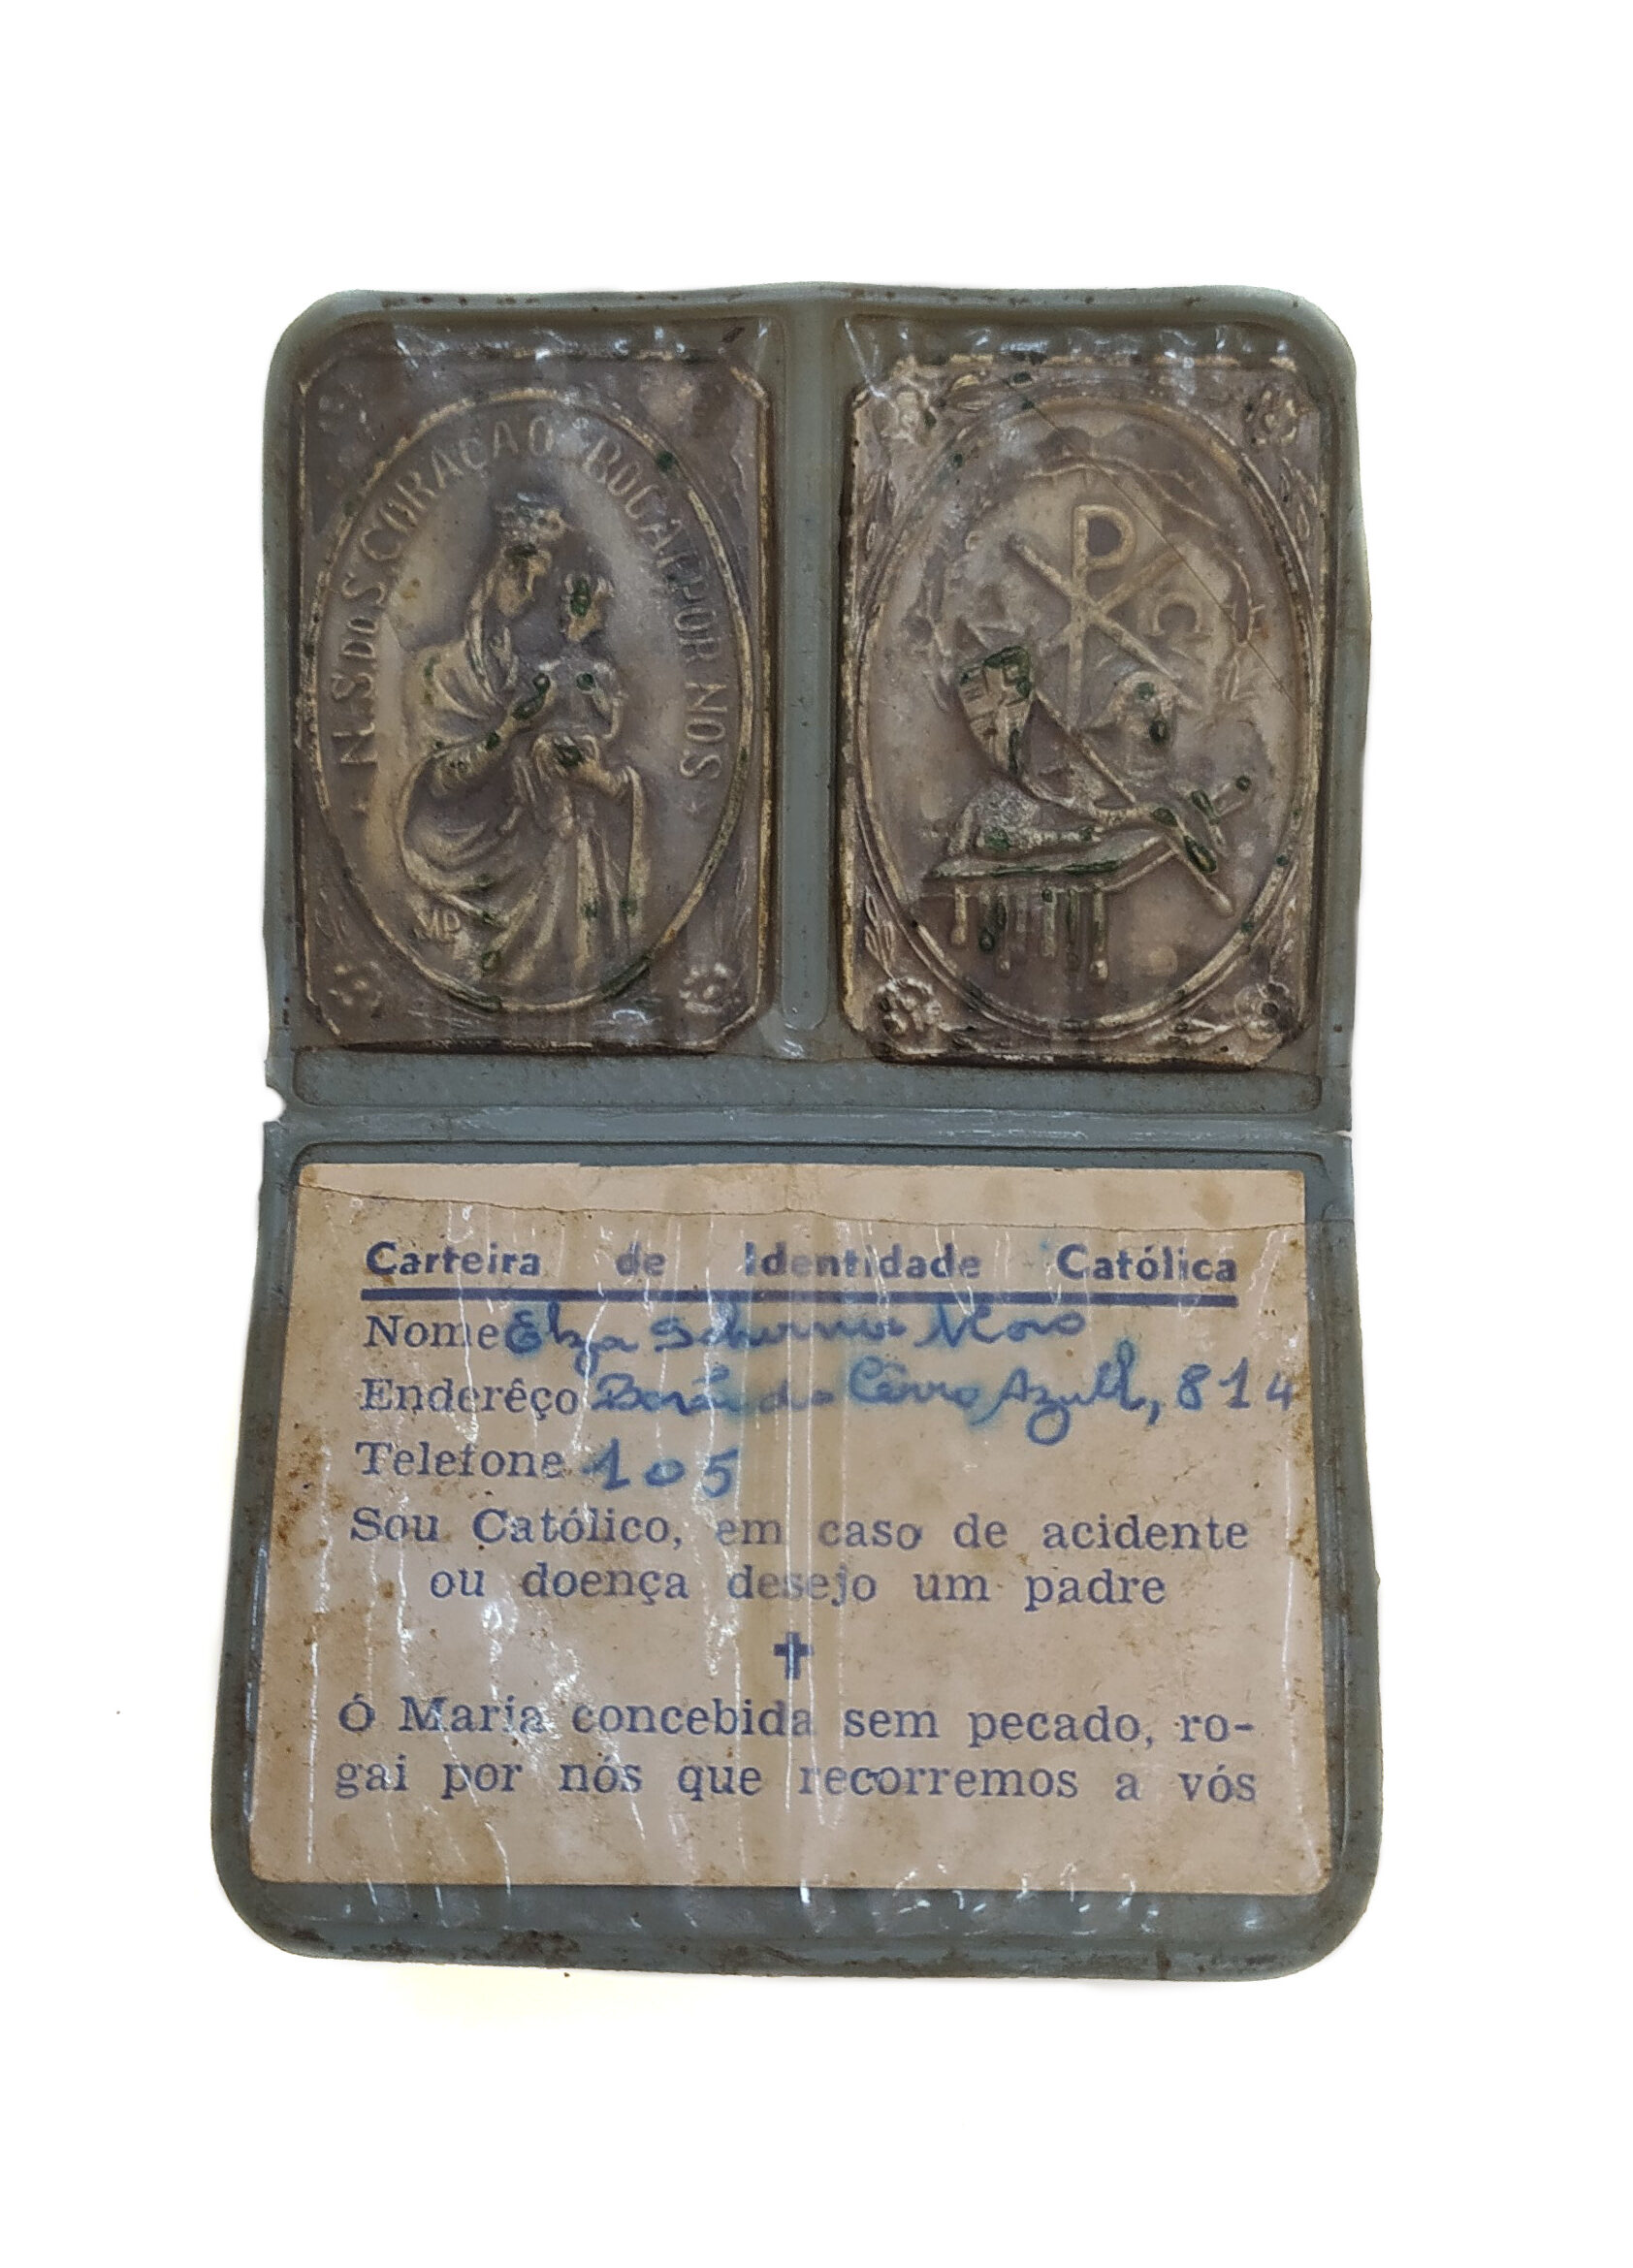 N.S. DO S. CORAÇAO ROGAI POR NOS
MP
P
C
Carteira de Identidade Católica
Nome Elza
Enderêço Barão do Cêrro Azul, 814
Telefone 105
Sou Católico, em caso de acidente
ou doença desejo um padre
Ó Maria concebida sem pecado, ro-
gai por nós que recorremos a vós